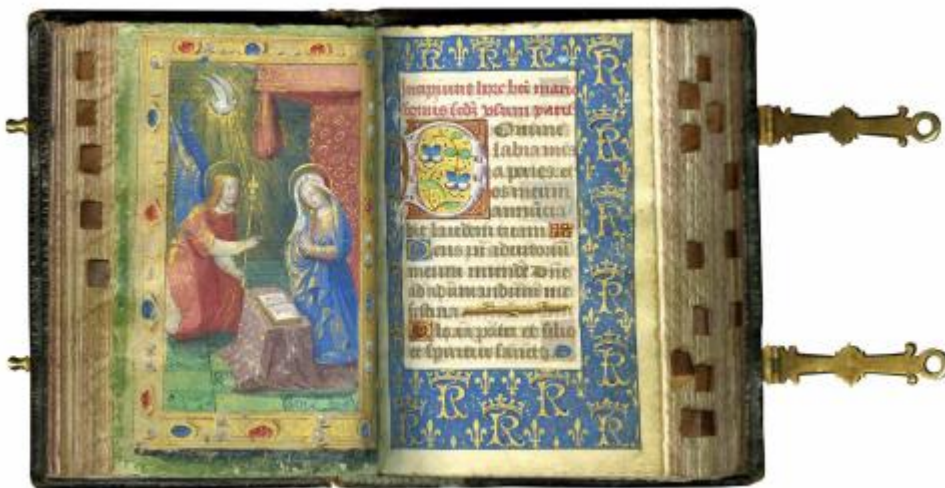 Incipiunt hore marie
usum
Domine
labia mea
aperies et
os meum
annūcia
bit laudem tuam
Deus in adiutoriū
meum intende Dñe
ad adiuvandum me
festina
Gloria patri et filio
et spiritui sancto